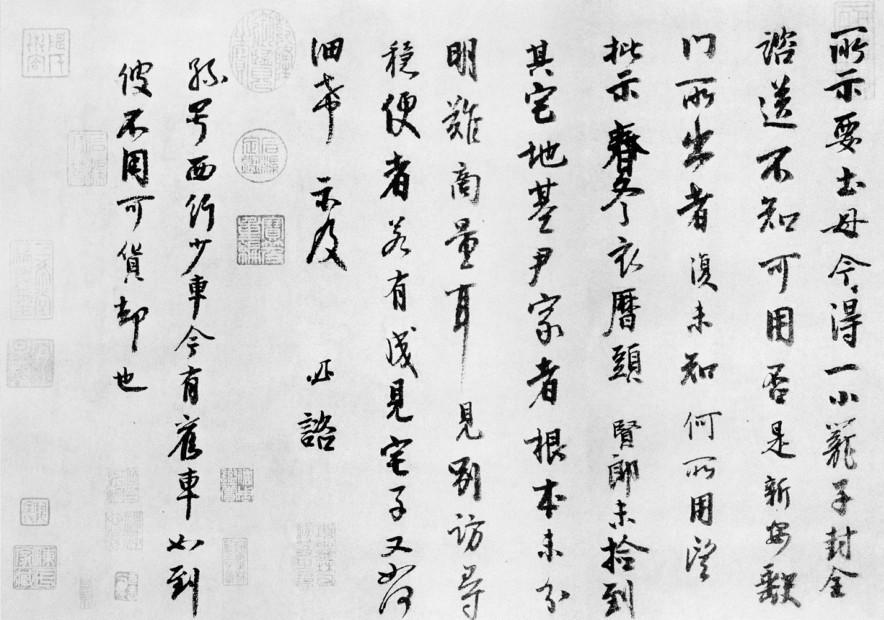 所示要土母今得一小籠子封全
諮送不知可用否是新安缺
門所出者復未知何所用望
批示春冬衣曆頭 賢郎未拾到
其宅地基尹家者根本未分
明難商量耳見別訪尋
穩便者若有成見宅子又如何
細希 示及 諮
孫号西行少車今有舊車如到
彼不用可貨却也